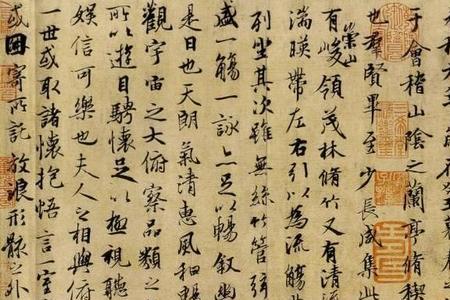 于會稽山陰之蘭亭脩稧
也群賢畢至少長咸集
有崇山峻領茂林脩竹又有清流
湍暎帶左右引以為流觴
列坐其次雖無絲竹管弦
盛一觴一詠亦足以暢敘幽
是日也天朗氣清惠風和暢
觀宇宙之大俯察品類之
所以遊目騁懷足以極視聽
娛信可樂也夫人之相與俯
一世或取諸懷抱悟言一室
或因寄所託放浪形骸之外